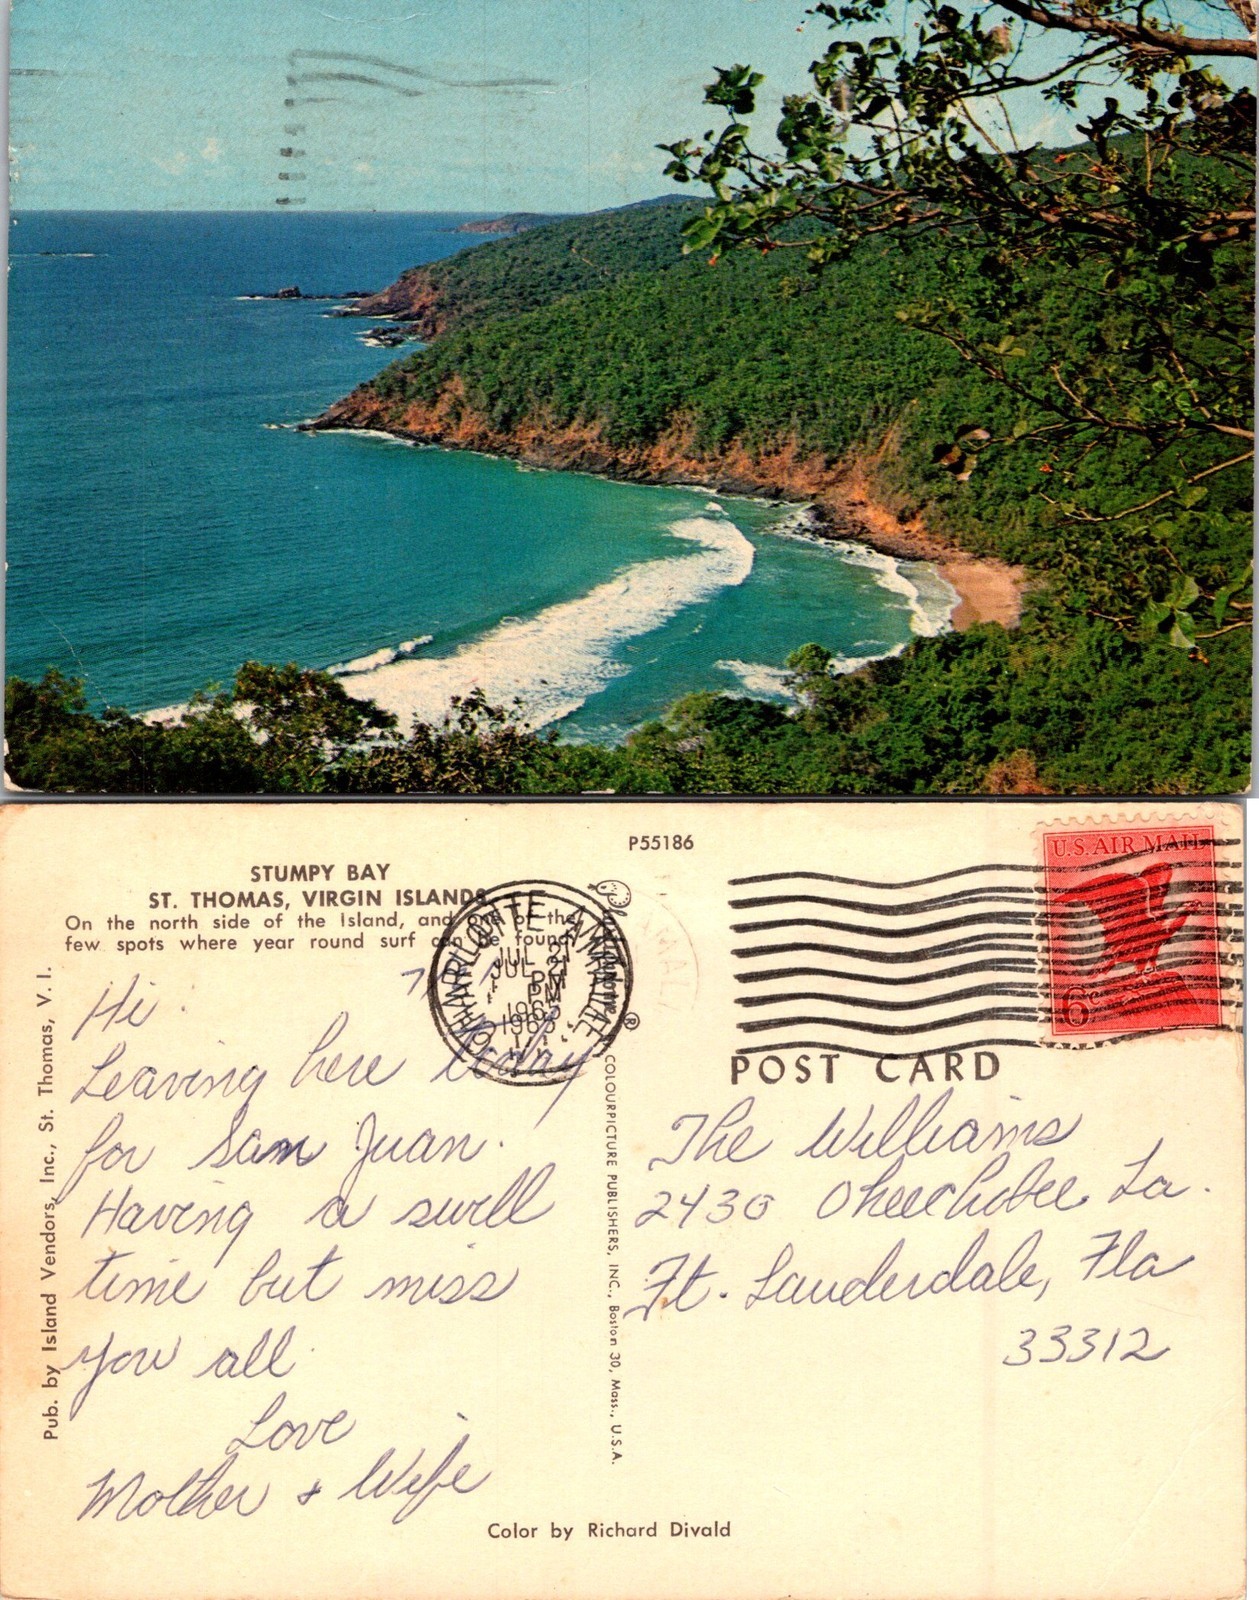 P55186
STUMPY BAY
ST. THOMAS, VIRGIN ISLANDS
On the north side of the Island, and one of the
few spots where year round surf can be found.
Pub. by Island Vendors, Inc., St. Thomas, V. I.
Hi.
Leaving here today
for San Juan.
Having a swell
time but miss
you all.
Love
Mother & Wife
CHARLOTTE AMALIE
JUL 21
PM
1965
Plastichrome ®
COLOURPICTURE PUBLISHERS, INC., Boston 30, Mass., U.S.A.
U.S. AIR MAIL
6c
POST CARD
The Williams
2430 Okeechobee La.
Ft. Lauderdale, Fla
33312
Color by Richard Divald